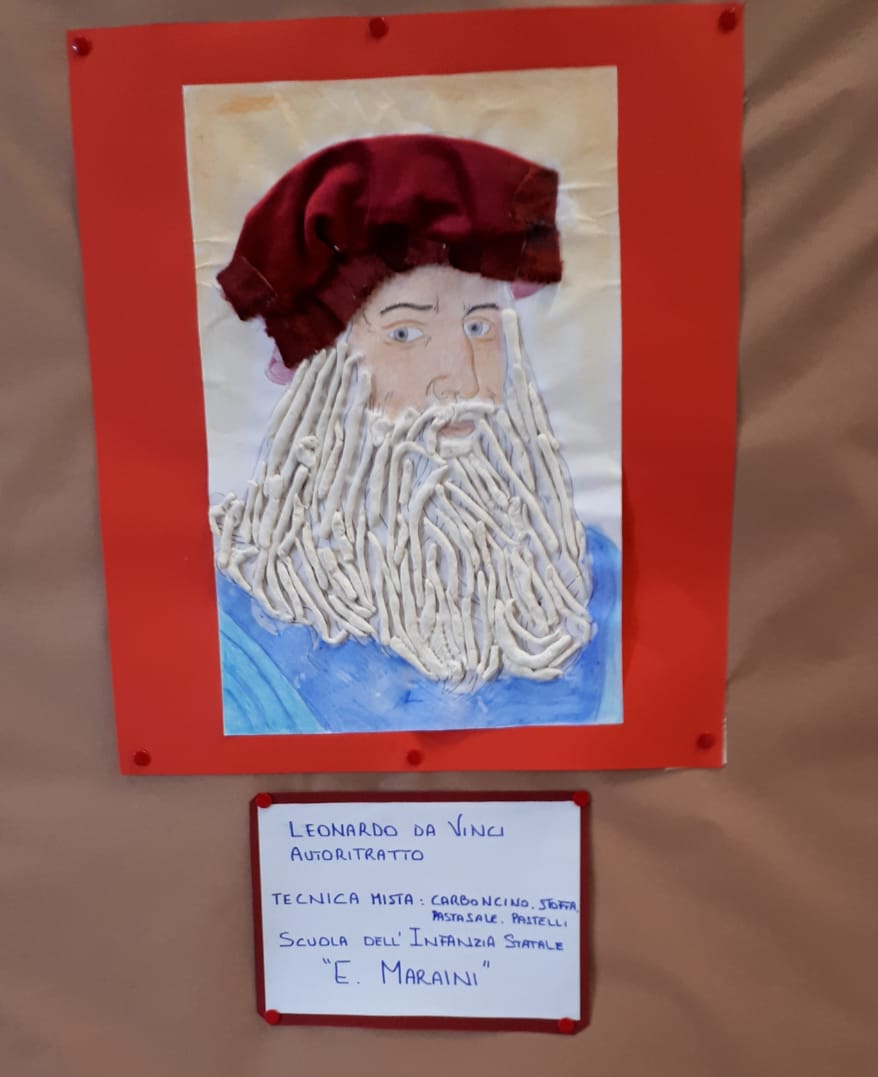 LEONARDO DA VINCI
AUTORITRATTO
TECNICA MISTA: CARBONCINO. STOFFA.
PASTASALE. PASTELLI
SCUOLA DELL'INFANZIA STATALE
"E. MARAINI"